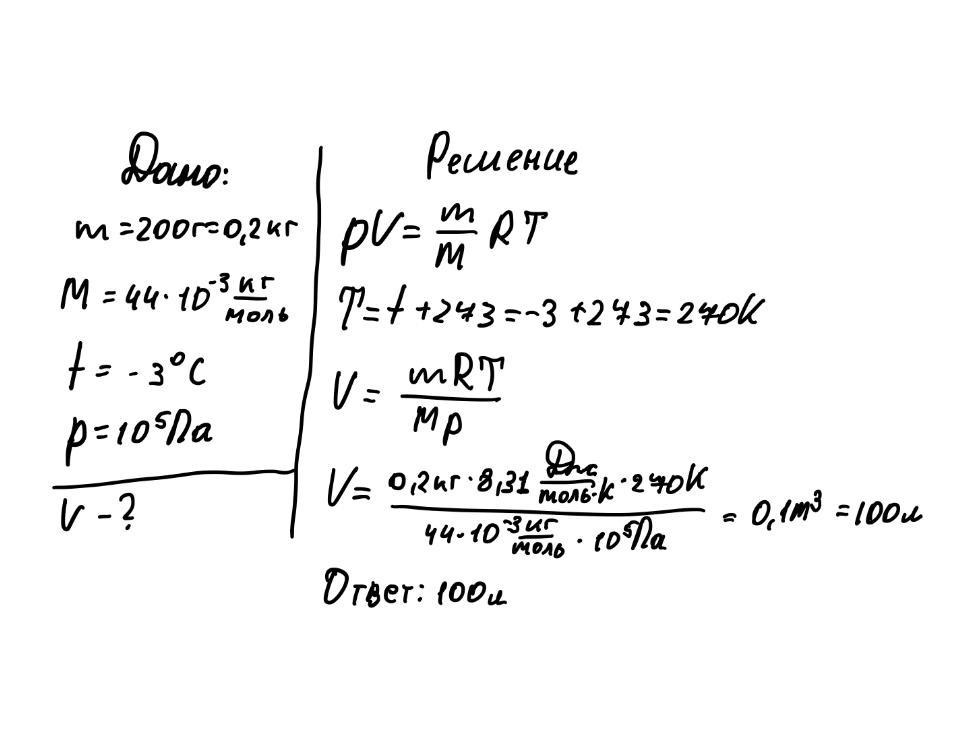 Дано:
m = 200г = 0,2 кг
M = 44 · 10⁻³ кг/моль
t = - 3°C
p = 10⁵ Па
V - ?
Решение
pV = m/M RT
T = t + 273 = -3 + 273 = 270K
V = mRT/Mp
V = (0,2 кг · 8,31 Дж/моль·К · 270K)/(44 · 10⁻³ кг/моль · 10⁵ Па) = 0,1 m³ = 100 л
Ответ: 100 л